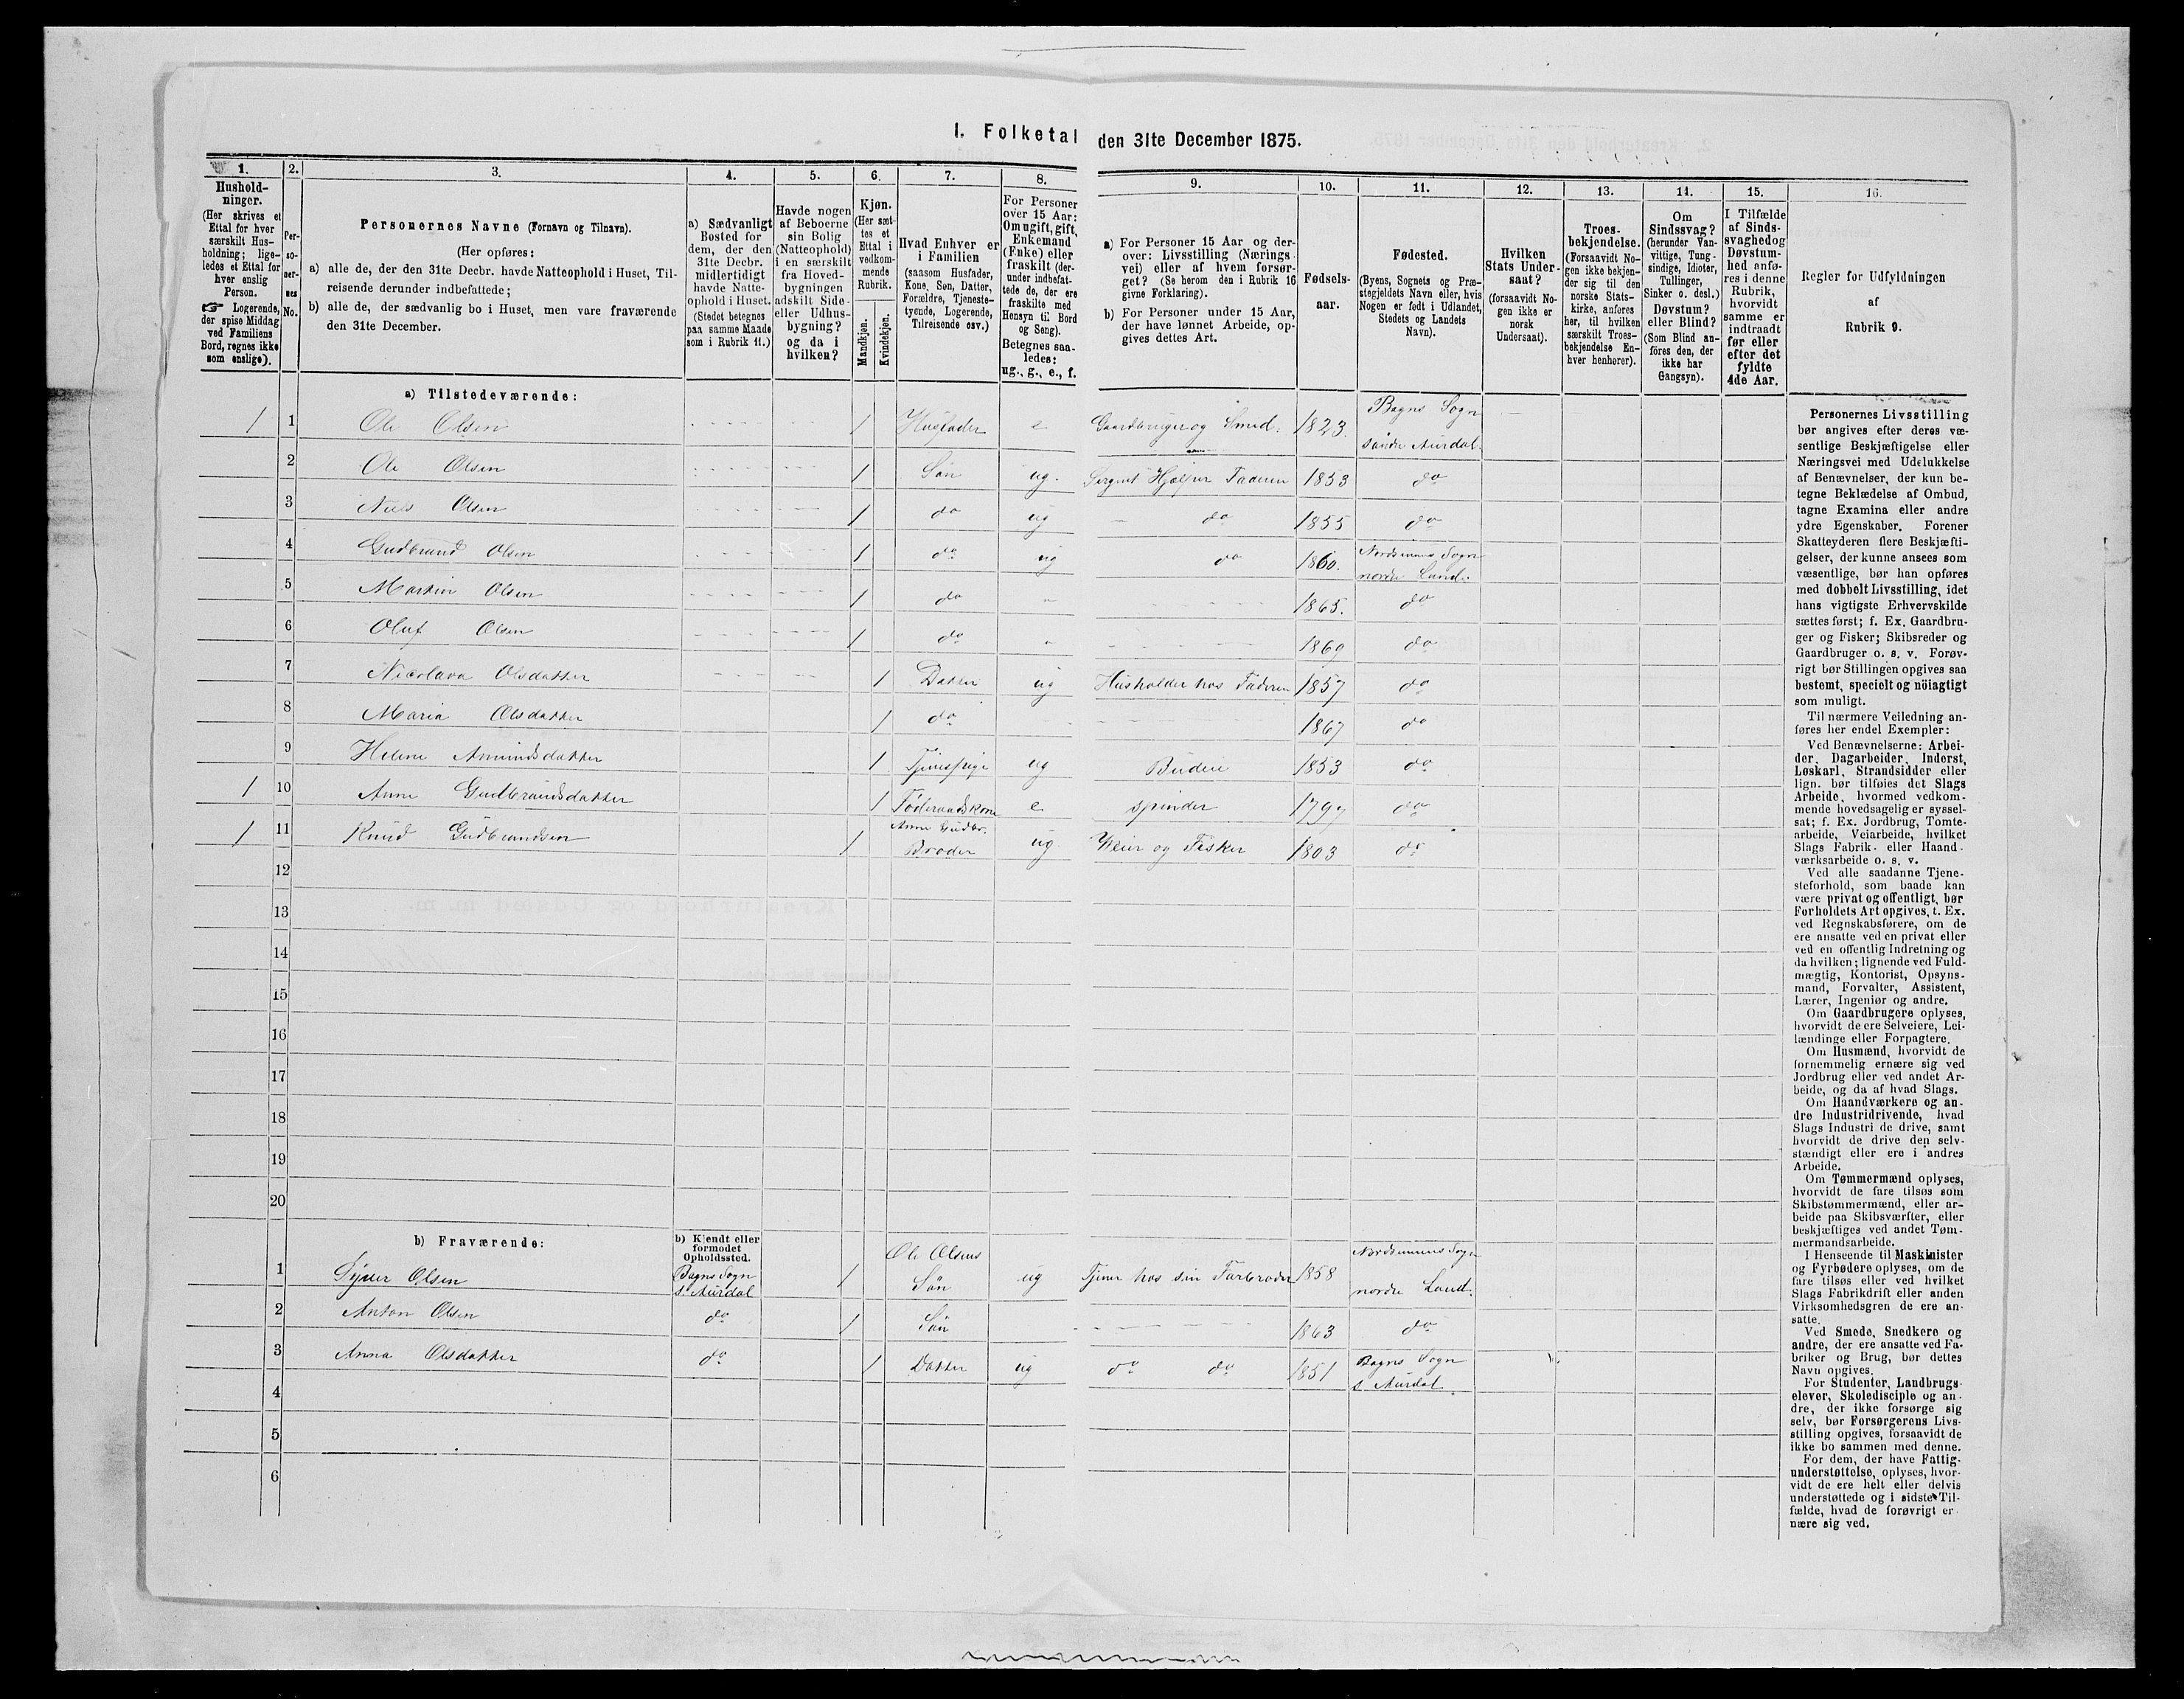 I. Folketal den 31te December 1875.
1.
Hushold-
ninger.
(Her skrives et
Ettal for hver
særskilt Hus-
holdning; lige-
ledes et Ettal for
hver enslig
Person.
☞ Logerende,
der spise Middag
ved Familiens
Bord, regnes ikke
som enslige).
2.
Per-
so-
ner-
nes
No.
3.
Personernes Navne (Fornavn og Tilnavn).
(Her opføres:
a) alle de, der den 31te Decbr. havde Natteophold i Huset, Til-
reisende derunder indbefattede;
b) alle de, der sædvanlig bo i Huset, men vare fraværende
den 31te December.
4.
a) Sædvanligt
Bosted for
dem, der den
31te Decbr.
midlertidigt
havde Natte-
ophold i Huset.
(Stedet betegnes
paa samme Maade
som i Rubrik 11.)
5.
Havde nogen
af Beboerne
sin Bolig
(Natteophold)
i en særskilt
fra Hoved-
bygningen
adskilt Side-
eller Udhus-
bygning?
og da i
hvilken?
6.
Kjøn.
(Her sæt-
tes et
Ettal i
vedkom-
mende
Rubrik.
Mandkjøn.
Kvindekjøn.
7.
Hvad Enhver er
i Familien
(saasom Husfader,
Kone, Søn, Datter,
Forældre, Tjeneste-
tyende, Logerende,
Tilreisende osv.)
8.
For Personer
over 15 Aar:
Om ugift, gift,
Enkemand
(Enke) eller
fraskilt (der-
under indbefat-
tede de, der ere
fraskilte med
Hensyn til Bord
og Seng).
Betegnes saa-
ledes:
ug., g., e., f.
9.
a) For Personer 15 Aar og der-
over: Livsstilling (Nærings-
vei) eller af hvem forsør-
get? (Se herom den i Rubrik 16
givne Forklaring).
b) For Personer under 15 Aar,
der have lønnet Arbeide, op-
gives dettes Art.
10.
Fødsels-
aar.
11.
Fødested.
(Byens, Sognets og Præ-
stegjeldets Navn eller, hvis
Nogen er født i Udlandet,
Stedets og Landets
Navn).
12.
Hvilken
Stats Under-
saat?
(forsaavidt No-
gen ikke er
norsk
Undersaat).
13.
Troes-
bekjendelse.
(Forsaavidt No-
gen ikke bekjen-
der sig til den
norske Stats-
kirke, anføres
her, til hvilken
særskilt Troes-
bekjendelse En-
hver henhører).
14.
Om
Sindssvag?
(herunder Van-
vittige, Tung-
sindige, Idioter,
Tullinger,
Sinker o. desl.)
Døvstum?
eller Blind?
(Som Blind an-
føres den, der
ikke har
Gangsyn).
15.
I Tilfælde
af Sinds-
svaghed og
Døvstum-
hed anfø-
res i denne
Rubrik,
hvorvidt
samme er
indtraadt
før eller
efter det
fyldte
4de Aar.
16.
Regler for Udfyldningen
af
Rubrik 9.
a) Tilstedeværende:
1 1 Ole Olsen 1 Husfader e Gaardbruger og Smed. 1823. Bagns Sogn
søndre Aurdal.
2 Ole Olsen 1 Søn ug. Sergent Hjælper Faderen 1853 do
3 Niels Olsen 1 do ug do 1855 do
4 Gudbrand Olsen 1 do ug do 1860. Nordsinnes Sogn
nordre Land.
5 Martin Olsen 1 do 1865. do
6 Oluf Olsen 1 do 1869 do
7 Nicolava Olsdatter 1 Datter ug Husholder hos Faderen 1857 do
8 Maria Olsdatter 1 do 1867 do
9 Helene Amundsdatter 1 Tjenespige ug Budeie 1853 do
1 10 Anne Gudbrandsdatter 1 Føderaadskone e spinder 1797 do
1 11 Knud Gudbrandsen 1 Anne Gudbr.
Broder ug Væver og Fisker 1803 do
12
13
14
15
16
17
18
19
20
b) Fraværende:
b) Kjendt eller
formodet
Opholdssted.
1 Syver Olsen Bagns Sogn
s. Aurdal 1 Ole Olsens
Søn ug Tjener hos sin Farbroder 1858 Nordsinnes Sogn
nordre Land.
2 Anton Olsen do 1 Søn 1863 do
3 Anna Olsdatter do 1 Datter ug do do 1851 Bagns Sogn
s Aurdal.
4
5
6
Personernes Livsstilling
bør angives efter deres væ-
sentlige Beskjæftigelse eller
Næringsvei med Udelukkelse
af Benævnelser, der kun be-
tegne Beklædelse af Ombud,
tagne Examina eller andre
ydre Egenskaber. Forener
Skatteyderen flere Beskjæfti-
gelser, der kunne ansees som
væsentlige, bør han opføres
med dobbelt Livsstilling, idet
hans vigtigste Erhvervskilde
sættes først; f. Ex. Gaardbru-
ger og Fisker; Skibsreder og
Gaardbruger o. s. v. Forøv-
rigt bør Stillingen opgives saa
bestemt, specielt og nöiagtigt
som muligt.
Til nærmere Veiledning an-
føres her endel Exempler:
Ved Benævnelserne: Arbei-
der, Dagarbeider, Inderst,
Løskarl, Strandsidder eller
lign. bør tilføies det Slags
Arbeide, hvormed vedkom-
mende hovedsagelig er syssel-
sat; f. Ex. Jordbrug, Tomte-
arbeide, Veiarbeide, hvilket
Slags Fabrik- eller Haand-
værksarbeide o. s. v.
Ved alle saadanne Tjene-
steforhold, som baade kan
være privat og offentligt, bør
Forholdets Art opgives, t. Ex.
ved Regnskabsførere, om de
ere ansatte ved en privat eller
ved en offentlig Indretning og
da hvilken; lignende ved Fuld-
mægtig, Kontorist, Opsyns-
mand, Forvalter, Assistent,
Lærer, Ingeniør og andre.
Om Gaardbrugere oplyses,
hvorvidt de ere Selveiere, Lei-
lændinge eller Forpagtere.
Om Husmænd, hvorvidt de
fornemmelig ernære sig ved
Jordbrug eller ved andet Ar-
beide, og da af hvad Slags.
Om Haandværkere og an-
dre Industridrivende, hvad
Slags Industri de drive, samt
hvorvidt de drive den selv-
stændigt eller ere i andres
Arbeide.
Om Tømmermænd oplyses,
hvorvidt de fare tilsøs som
Skibstømmermænd, eller ar-
beide paa Skibsværfter, eller
beskjæftiges ved andet Tøm-
mermandsarbeide.
I Henseende til Maskinister
og Fyrbødere oplyses, om de
fare tilsøs eller ved hvilket
Slags Fabrikdrift eller anden
Virksomhedsgren de ere an-
satte.
Ved Smede, Snedkere og
andre, der ere ansatte ved Fa-
briker og Brug, bør dettes
Navn opgives.
For Studenter, Landbrugs-
elever, Skoledisciple og an-
dre, der ikke forsørge sig
selv, bør Forsørgerens Livs-
stilling opgives, forsaavidt de
ikke bo sammen med denne.
For dem, der have Fattig-
understøttelse, oplyses, hvor-
vidt de ere helt eller delvis
understøttede og i sidste Til-
fælde, hvad de forøvrigt er-
nære sig ved.